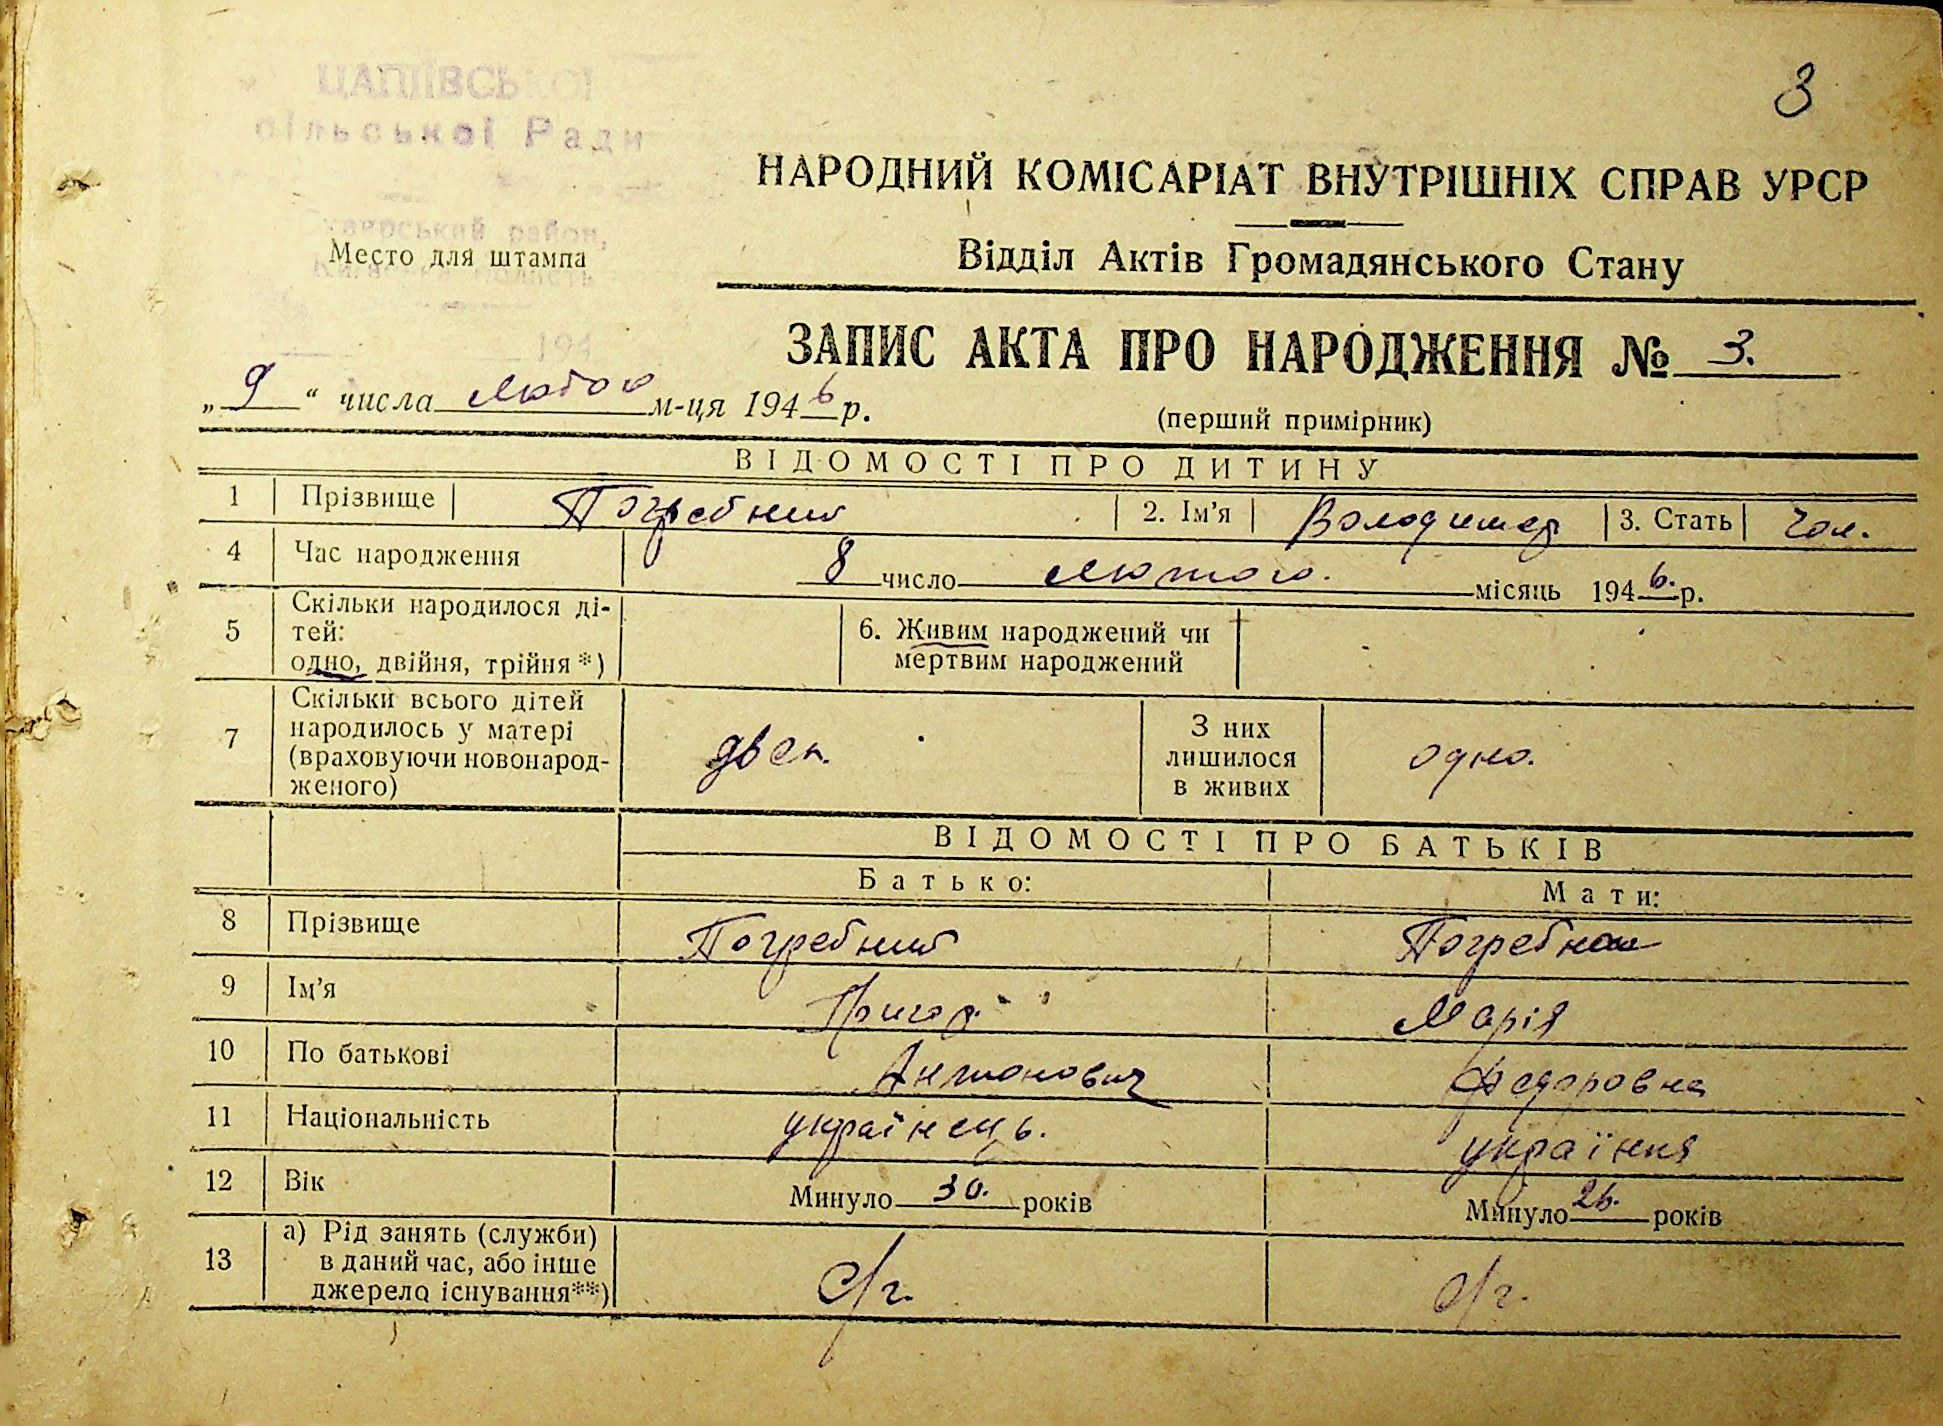 3
ЦАПІЇВСЬКОЇ
сільської Ради
район,
НАРОДНИЙ КОМІСАРІАТ ВНУТРІШНІХ СПРАВ УРСР
Место для штампа
Відділ Актів Громадянського Стану
194
ЗАПИС АКТА ПРО НАРОДЖЕННЯ № 3.
„ 9 “ числа лютого м-ця 1946 р.
(перший примірник)
ВІДОМОСТІ ПРО ДИТИНУ
1 Прізвище Погребний 2. Ім'я Володимер 3. Стать чол.
4 Час народження 8 число лютого. місяць 1946. р.
5 Скільки народилося ді-
тей:
одно, двійня, трійня*)
6. Живим народжений чи
мертвим народжений
7 Скільки всього дітей
народилось у матері
(враховуючи новонарод-
женого)
двох.
З них
лишилося
в живих
одно.
ВІДОМОСТІ ПРО БАТЬКІВ
Батько: Мати:
8 Прізвище Погребний Погребная
9 Ім'я Григор. Марія
10 По батькові Антонович Федоровна
11 Національність українець. українка
12 Вік Минуло 30. років Минуло 26. років
13 а) Рід занять (служби)
в даний час, або інше
джерело існування**)
с/г. с/г.